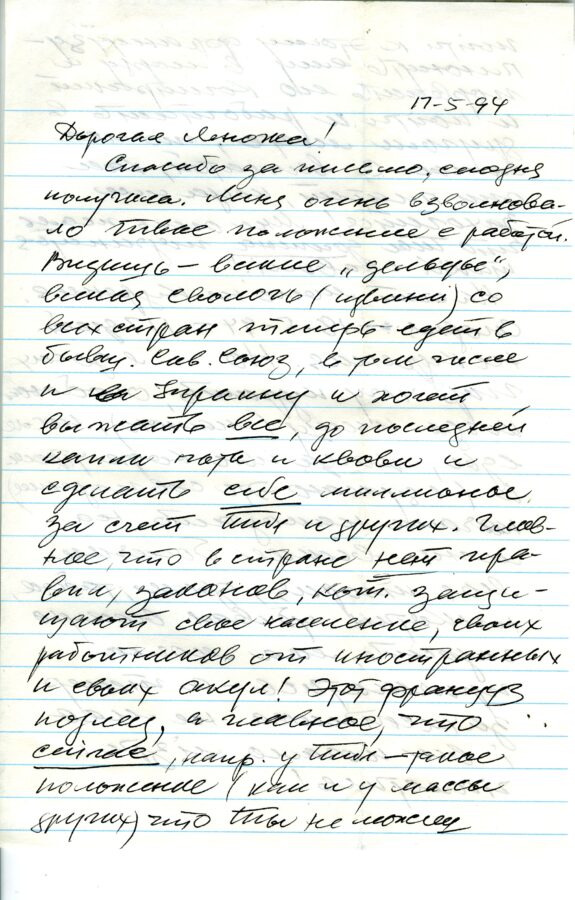 17-5-94
Дорогая Леножка!
Спасибо за письмо, сегодня
получила. Меня очень взволнова-
ло твое положение с работой.
Видишь – всякие „дельцы“,
всякая сволочь (извини) со
всех стран теперь едет в
бывш. Сов. Союз, в том числе
и на Украину и хотят
выжать все, до последней
капли пота и крови и
сделать себе миллионы
за счет тебя и других. Глав-
ное, что в стране нет пра-
вил, законов, кот. защи-
щают свое население, своих
работников от иностранных
и своих акул! Этот француз
подлец, а главное, что
сейчас, напр. у тебя – такое
положение (как и у массы
других) что ты не можешь